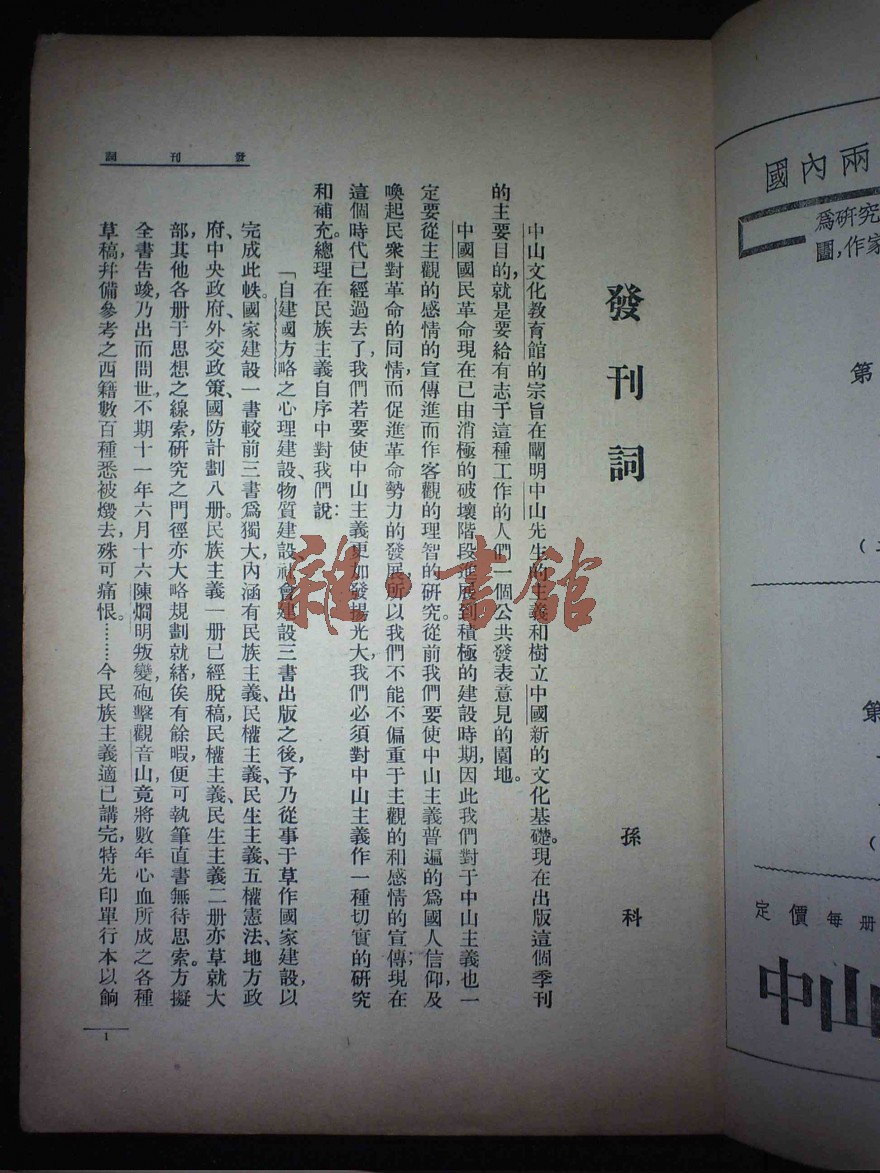 國內兩
爲研究
圖,作家
第
第
定價每册
中山
發刊詞
孫科
中山文化教育館的宗旨在闡明中山先生的主義和樹立中國新的文化基礎。現在出版這個季刊
的主要目的,就是要給有志于這種工作的人們一個公共發表意見的園地。
中國國民革命現在已由消極的破壞階段進展到積極的建設時期,因此我們對于中山主義也一
定要從主觀的感情的宣傳進而作客觀的理智的研究。從前我們要使中山主義普遍的爲國人信仰,及
喚起民衆對革命的同情,而促進革命勢力的發展,所以我們不能不偏重于主觀的和感情的宣傳;現在
這個時代已經過去了,我們若要使中山主義更加發揚光大,我們必須對中山主義作一種切實的研究
和補充。總理在民族主義自序中對我們說:
「自建國方略之心理建設、物質建設、社會建設三書出版之後,予乃從事于草作國家建設,以
完成此帙。國家建設一書較前三書爲獨大,內涵有民族主義、民權主義、民生主義、五權憲法、地方政
府、中央政府、外交政策、國防計劃八册。民族主義一册已經脫稿,民權主義、民生主義二册亦草就大
部,其他各册于思想之線索,研究之門徑亦大略規劃就緒,俟有餘暇,便可執筆直書,無待思索。方擬
全書告竣,乃出而問世,不期十一年六月十六陳烱明叛變,砲擊觀音山,竟將數年心血所成之各種
草稿,幷備參考之西籍數百種悉被燬去,殊可痛恨。………今民族主義適已講完,特先印單行本以餉
發刊詞
1
雜·書館